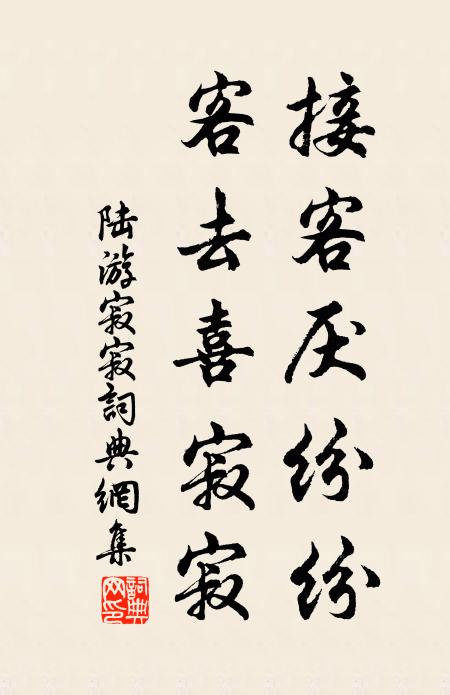 接客厌纷纷
客去喜寂寂
陆游寂寂詞典網集
詞典网印